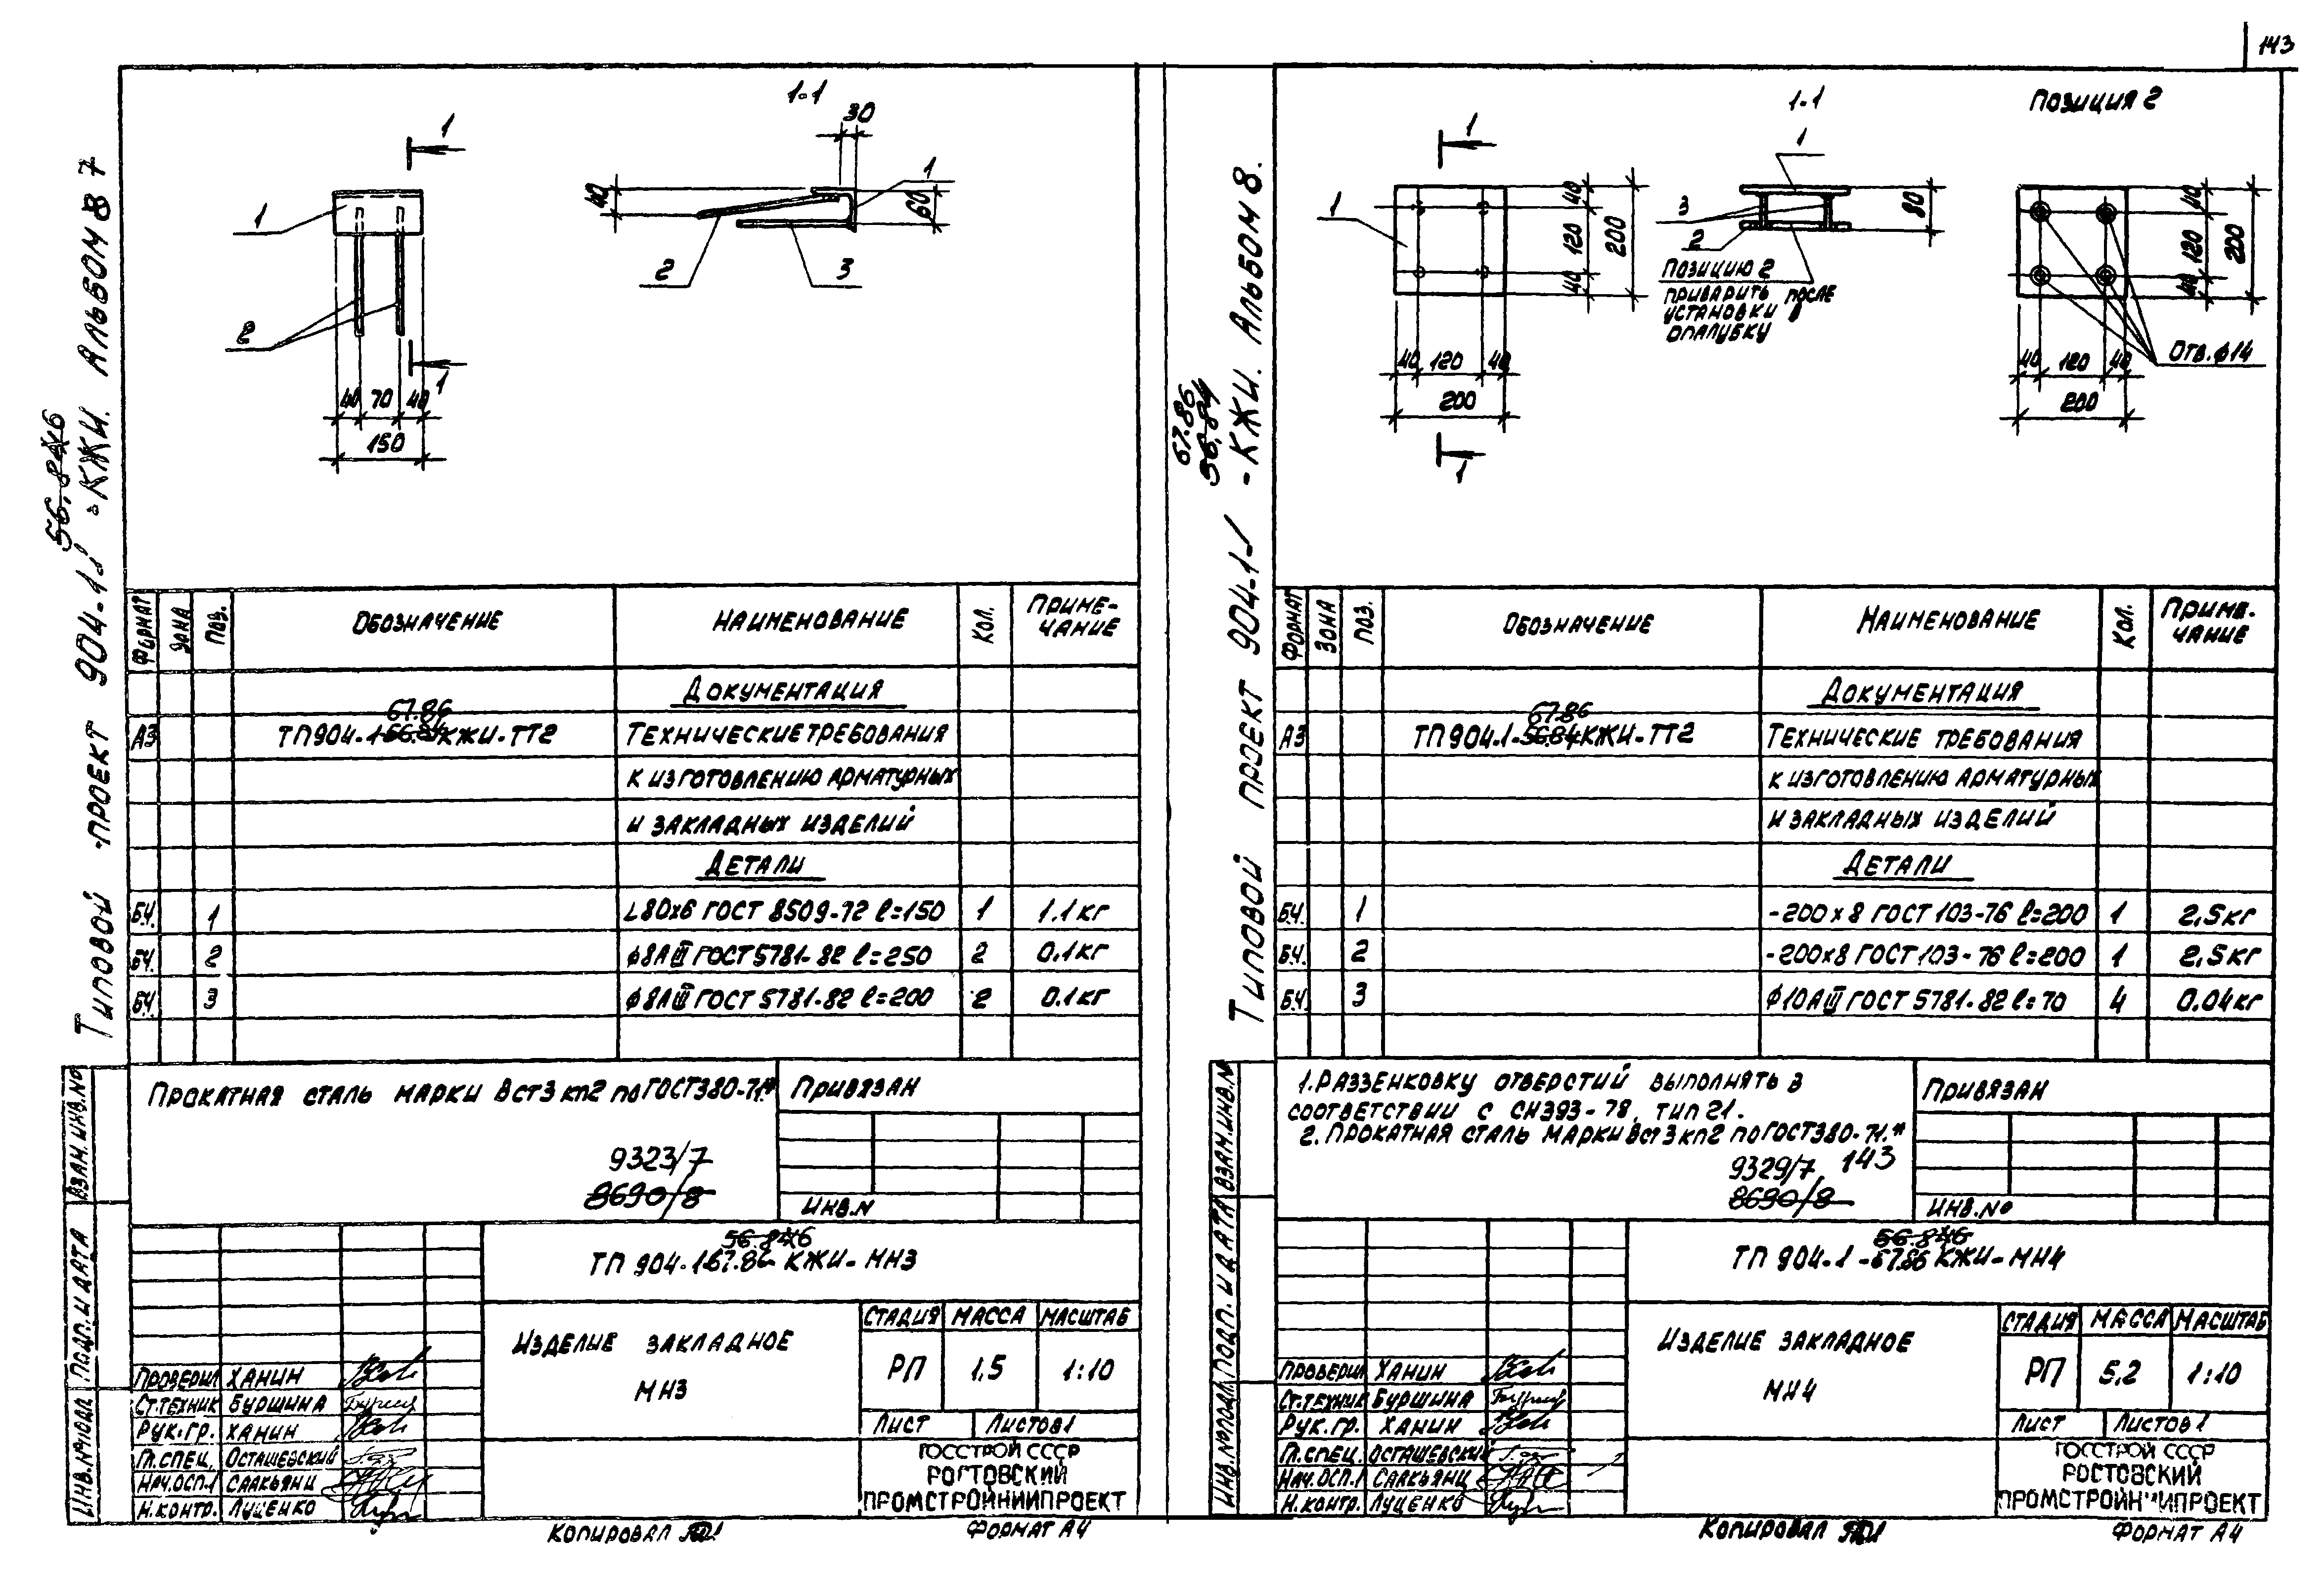 143
Типовой проект 904-1- -КЖИ. Альбом 8 7
56.84 86
1-1
1
1
2
1
40 70 40
150
30
40
60
1
2
3
Формат
Зона
Поз.
Обозначение
Наименование
Кол.
Приме-
чание
Документация
67.86
А3 ТП904-1-56.84КЖИ-ТТ2 Технические требования
к изготовлению арматурных
и закладных изделий
Детали
Б.Ч. 1 L80х6 ГОСТ 8509-72 ℓ=150 1 1.1кг
Б.Ч. 2 ϕ8АIII ГОСТ 5781-82 ℓ=250 2 0.1кг
Б.Ч. 3 ϕ8АIII ГОСТ 5781-82 ℓ=200 2 0.1кг
Прокатная сталь марки Вст3кп2 по ГОСТ380-71*
Привязан
9323/7
8690/8
Инв.N
56.84 86
ТП 904-1 67.86 КЖИ-МН3
Изделие закладное
МН3
Стадия Масса Масштаб
РП 1,5 1:10
Лист Листов 1
Госстрой СССР
Ростовский
Промстройниипроект
Проверил Ханин
Ст.техник Буршина
Рук.гр. Ханин
Гл.спец. Осташевский
Нач.ОСП-1 Саакьянц
Н.контр. Луценко
Взам.инв.№
Подп. и дата
Инв.№ подл.
Копировал
Формат А4
Типовой проект 904-1- -КЖИ. Альбом 8.
67.86
56.84
1-1
Позиция 2
1
1
1
40 120 40
200
40 120 40
200
1
3
2
80
Позицию 2
приварить после
установки в
опалубку
40 120 40
200
40 120 40
200
Отв.ϕ14
Формат
Зона
Поз.
Обозначение
Наименование
Кол.
Приме-
чание
Документация
67.86
А3 ТП904-1-56.84КЖИ-ТТ2 Технические требования
к изготовлению арматурных
и закладных изделий
Детали
Б.Ч. 1 -200х8 ГОСТ 103-76 ℓ=200 1 2,5кг
Б.Ч. 2 -200х8 ГОСТ 103-76 ℓ=200 1 2,5кг
Б.Ч. 3 ϕ10АIII ГОСТ 5781-82 ℓ=70 4 0.04кг
1. Раззенковку отверстий выполнять в
соответствии с СН393-78, тип 21.
2. Прокатная сталь марки Вст3кп2 по ГОСТ380-71*
Привязан
9329/7 143
8690/8
Инв.№
56.84 86
ТП 904-1-67.86 КЖИ-МН4
Изделие закладное
МН4
Стадия Масса Масштаб
РП 5,2 1:10
Лист Листов 1
Госстрой СССР
Ростовский
Промстройн иипроект
Проверил Ханин
Ст.техник Буршина
Рук.гр. Ханин
Гл.спец. Осташевский
Нач.ОСП.1 Саакьянц
Н.контр. Луценко
Взам.инв.№
Подп. и дата
Инв.№ подл.
Копировал
Формат А4